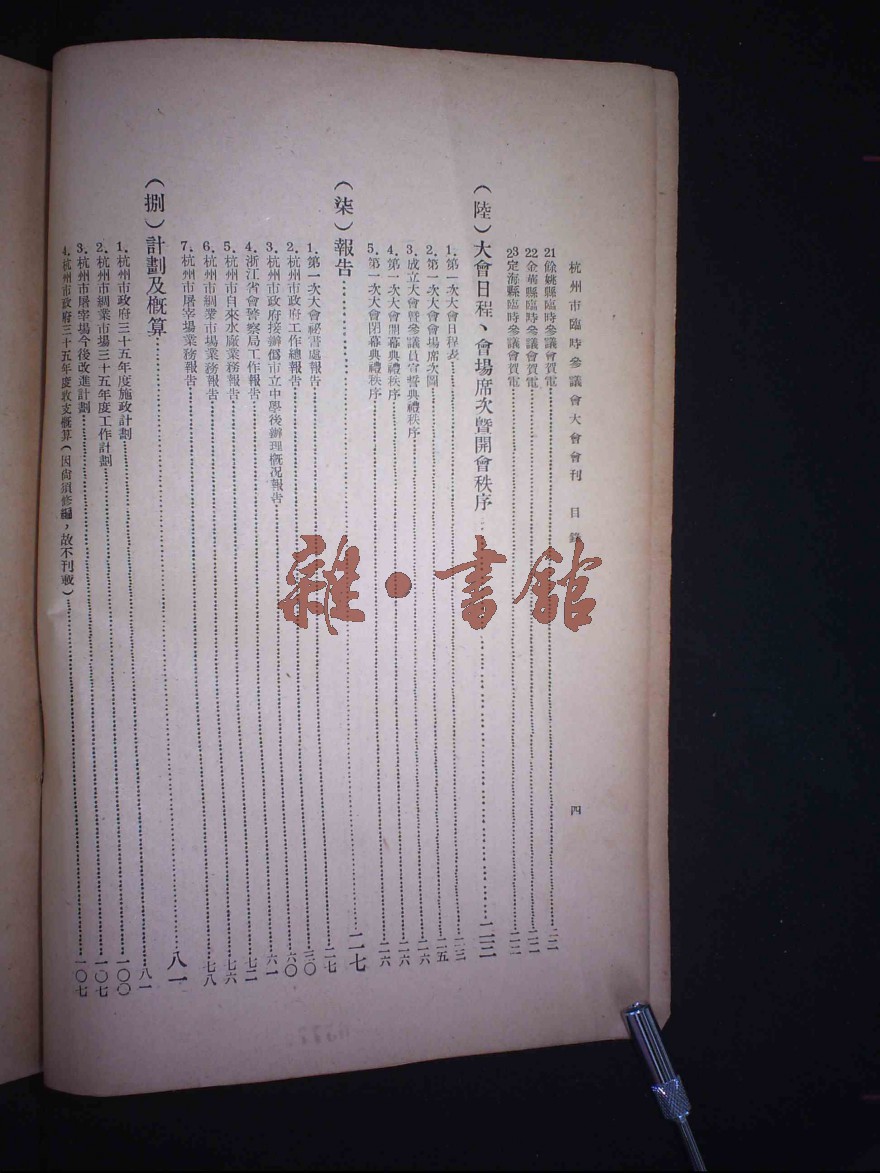 杭州市臨時參議會大會會刊　目錄　四
21餘姚縣臨時參議會賀電……二二
22金華縣臨時參議會賀電……二二
23定海縣臨時參議會賀電……二二
（陸）大會日程、會場席次暨開會秩序……二三
1.第一次大會日程表……二三
2.第一次大會會場席次圖……二五
3.成立大會暨參議員宣誓典禮秩序……二六
4.第一次大會開幕典禮秩序……二六
5.第一次大會閉幕典禮秩序……二六
（柒）報告……二七
1.第一次大會祕書處報告……二七
2.杭州市政府工作總報告……三〇
3.杭州市政府接辦僞市立中學後辦理概況報告……六〇
4.浙江省會警察局工作報告……六一
5.杭州市自來水廠業務報告……七二
6.杭州市綢業市場業務報告……七六
7.杭州市屠宰場業務報告……七八
（捌）計劃及概算……八一
1.杭州市政府三十五年度施政計劃……八一
2.杭州市綢業市場三十五年度工作計劃……一〇〇
3.杭州市屠宰場今後改進計劃……一〇七
4.杭州市政府三十五年度收支概算（因尙須修編，故不刊載）……一〇七
雜·書館